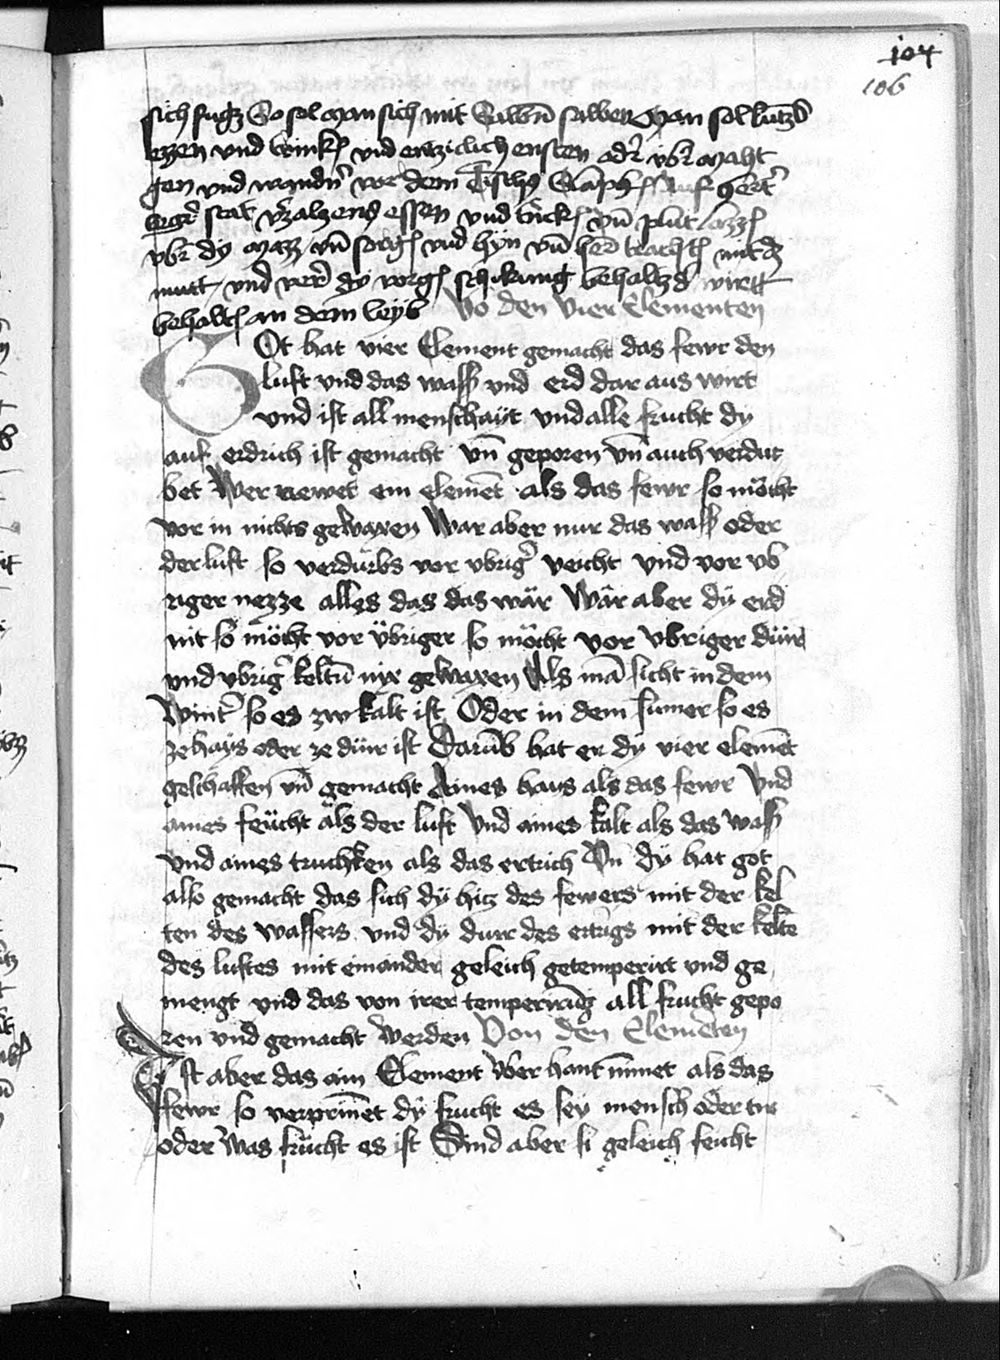 104
106
sich fugz So sol man sich mit Salbn̄ salben Man sol
ezzen vnd trinkn̄ vnd entziclich ensten odr̄ vbr̄ maht
gen vnd wandn̄ vor dem
stat essen vnd vn̄ plut lazzn̄
vbr̄ dy mazz vn̄ sorgn̄ vnd hyn vn̄ herd trachtn̄ mit dz
mutt vnd wer dy behaltzd wirtt
behaltn̄ an dem leyb Vō den vier Elementen
Got hat vier Element gemacht das fewr den
luft vnd das wass̄ vnd erd dar aus wirt
vnd ist all menschayt vnd alle frucht dy
auf erdrich ist gemacht vn̄ geporen vn̄ auch verdur
bet Wer newet ein elemēt als das fewr so möcht
vor in nichts gewaxen War aber nur das wass̄ oder
der luft so verdürbs vor vbrigr̄ veicht vnd vor vb
riger nezze alles das das wär Wär aber dÿ erd
nit so möcht vor übriger so möcht vor vbriger dürr
vnd vbrigr̄ keltn̄ nix gewaxen Als mā sicht in dem
Wintr̄ so es zw kalt ist Oder in dem sumer so es
ze hays oder ze dürr ist Darūb hat er dÿ vier elemēt
geschaffen vn̄ gemacht Aines hays als das fewr Vnd
aines feücht als der luft Vnd aines kalt als das wass̄
vnd aines truchken als das ertrich Vn̄ dÿ hat got
also gemacht das sich dÿ hicz des fewers mit der kel
ten des wassers vnd dÿ durr des ertrigs mit der kelte
des luftes mit einander geleich getemperirt vnd ge
mengt vnd das von irer temperirūg all frucht gepo
ren vnd gemacht werden Von den Elemēten
Ist aber das ain Element vber hant nīmet als das
fewr so verprīnet dÿ frucht es sey mensch̄ oder tir
oder was frücht es ist Sind aber si geleich feicht